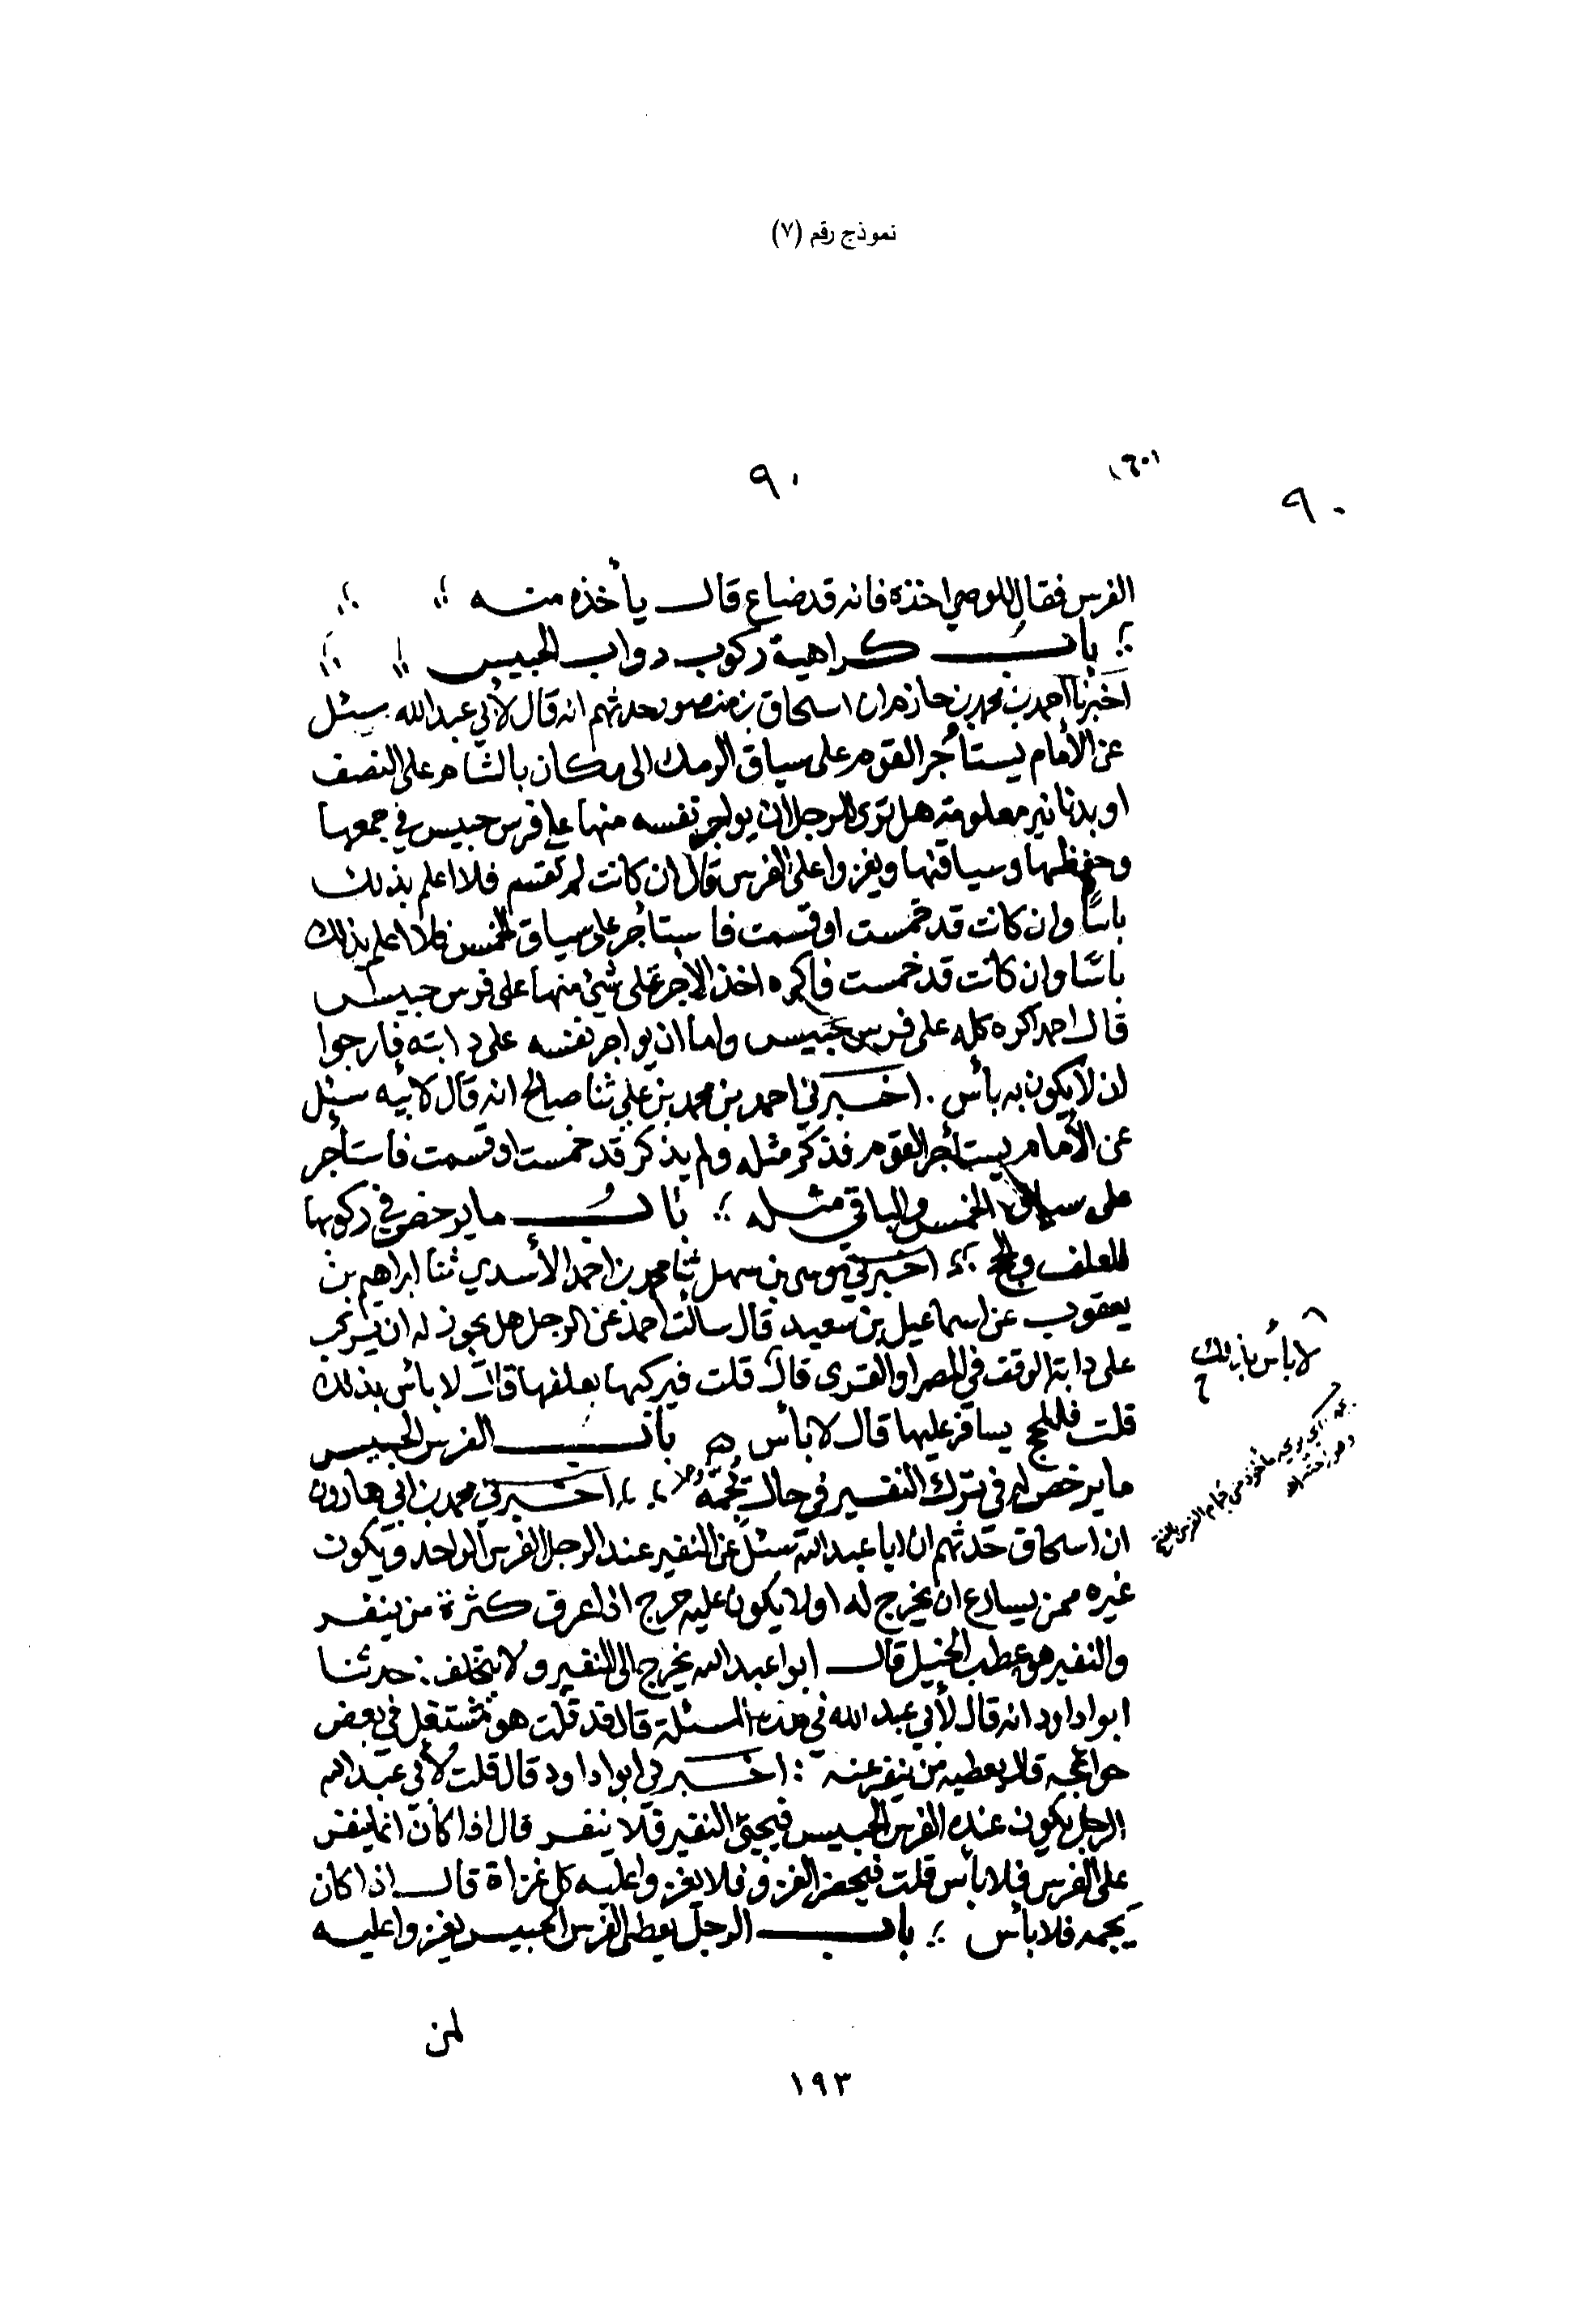 نموذج رقم (٧)
٩٠
٩٠
الفرس فقال للوصي اخذه فانه قد ضاع قال يأخذه منه
باب كراهية ركوب دواب الحبيس
اخبرنا احمد بن محمد بن حازم ان اسحاق بن منصور حدثهم انه قال لأبي عبد الله سئل
عن الأمام يستأجر القوم على سياق الرمك الى مكان بالشام على النصف
او بدنانير معلومة هل ترى للرجل ان يواجر نفسه منها على فرس حبيس في جمعها
وحفظها وسياقتها ويغزوا على الفرس قال ان كانت لم تقسم فلا اعلم بذلك
باسًا وان كانت قد خمست او قسمت فاستأجر على سياق الخمس فلا اعلم بذلك
باسًا وان كانت قد خمست فاكره اخذ الأجرة على شئ منها على فرس حبيس
قال احمد اكره كله على فرس حبيس واما ان يواجر نفسه على دابته فارجوا
ان لا يكون به بأس . اخبرني احمد بن محمد بن علي ثنا صالح انه قال لابيه سئل
عن الأمام يستأجر القوم فذكر مثله ولم يذكر قد خمست او قسمت فاستأجر
على سياق الخمس والباقي مثله باب ما يرخص في ركوبها
للعلف والحج اخبرني موسى بن سهل ثنا محمد بن احمد الأسدي ثنا ابراهيم بن
يعقوب عن اسماعيل بن سعيد قال سالت احمد عن الرجل هل يجوز له ان يركب
على دابة الوقف في المصر او القرى قال قلت فيركبها يعلفها قال لا بأس بذلك
لا بأس بذلك
قلت فللحج يسافر عليها قال لا بأس باب الفرس الحبيس
ما يرخص له في ترك النفير في حال تجمه اخبرني محمد بن ابي هارون
ان اسحاق حدثهم ان ابا عبد الله سئل عن النفير عند الرجل الفرس الواحد ويكون
غيره ممن يسارع ان يخرج له او لا يكون عليه حرج اذا عرف كثرة من ينفر
والنفير هو عطب الخيل قال ابوا عبد الله يخرج الى النفير ولا يتخلف : حدثنا
ابوا داود انه قال لأبي عبد الله في هذه المسئلة قال قد قلت هو مشتغل في بعض
حوائجه قال يعطيه من ينفر عنه : اخبرني ابوا داود قال قلت لأبي عبد الله
الرجل يكون عنده الفرس الحبيس فيجئ النفير فلا ينفر قال اذا كان انما ينفر
على الفرس فلا بأس قلت فيحضر الغزو فلا يغزوا عليه كل غزاة قال اذا كان
يجمه فلا بأس باب الرجل يعطى الفرس الحبيس يغزوا عليه
لمن
١٩٣